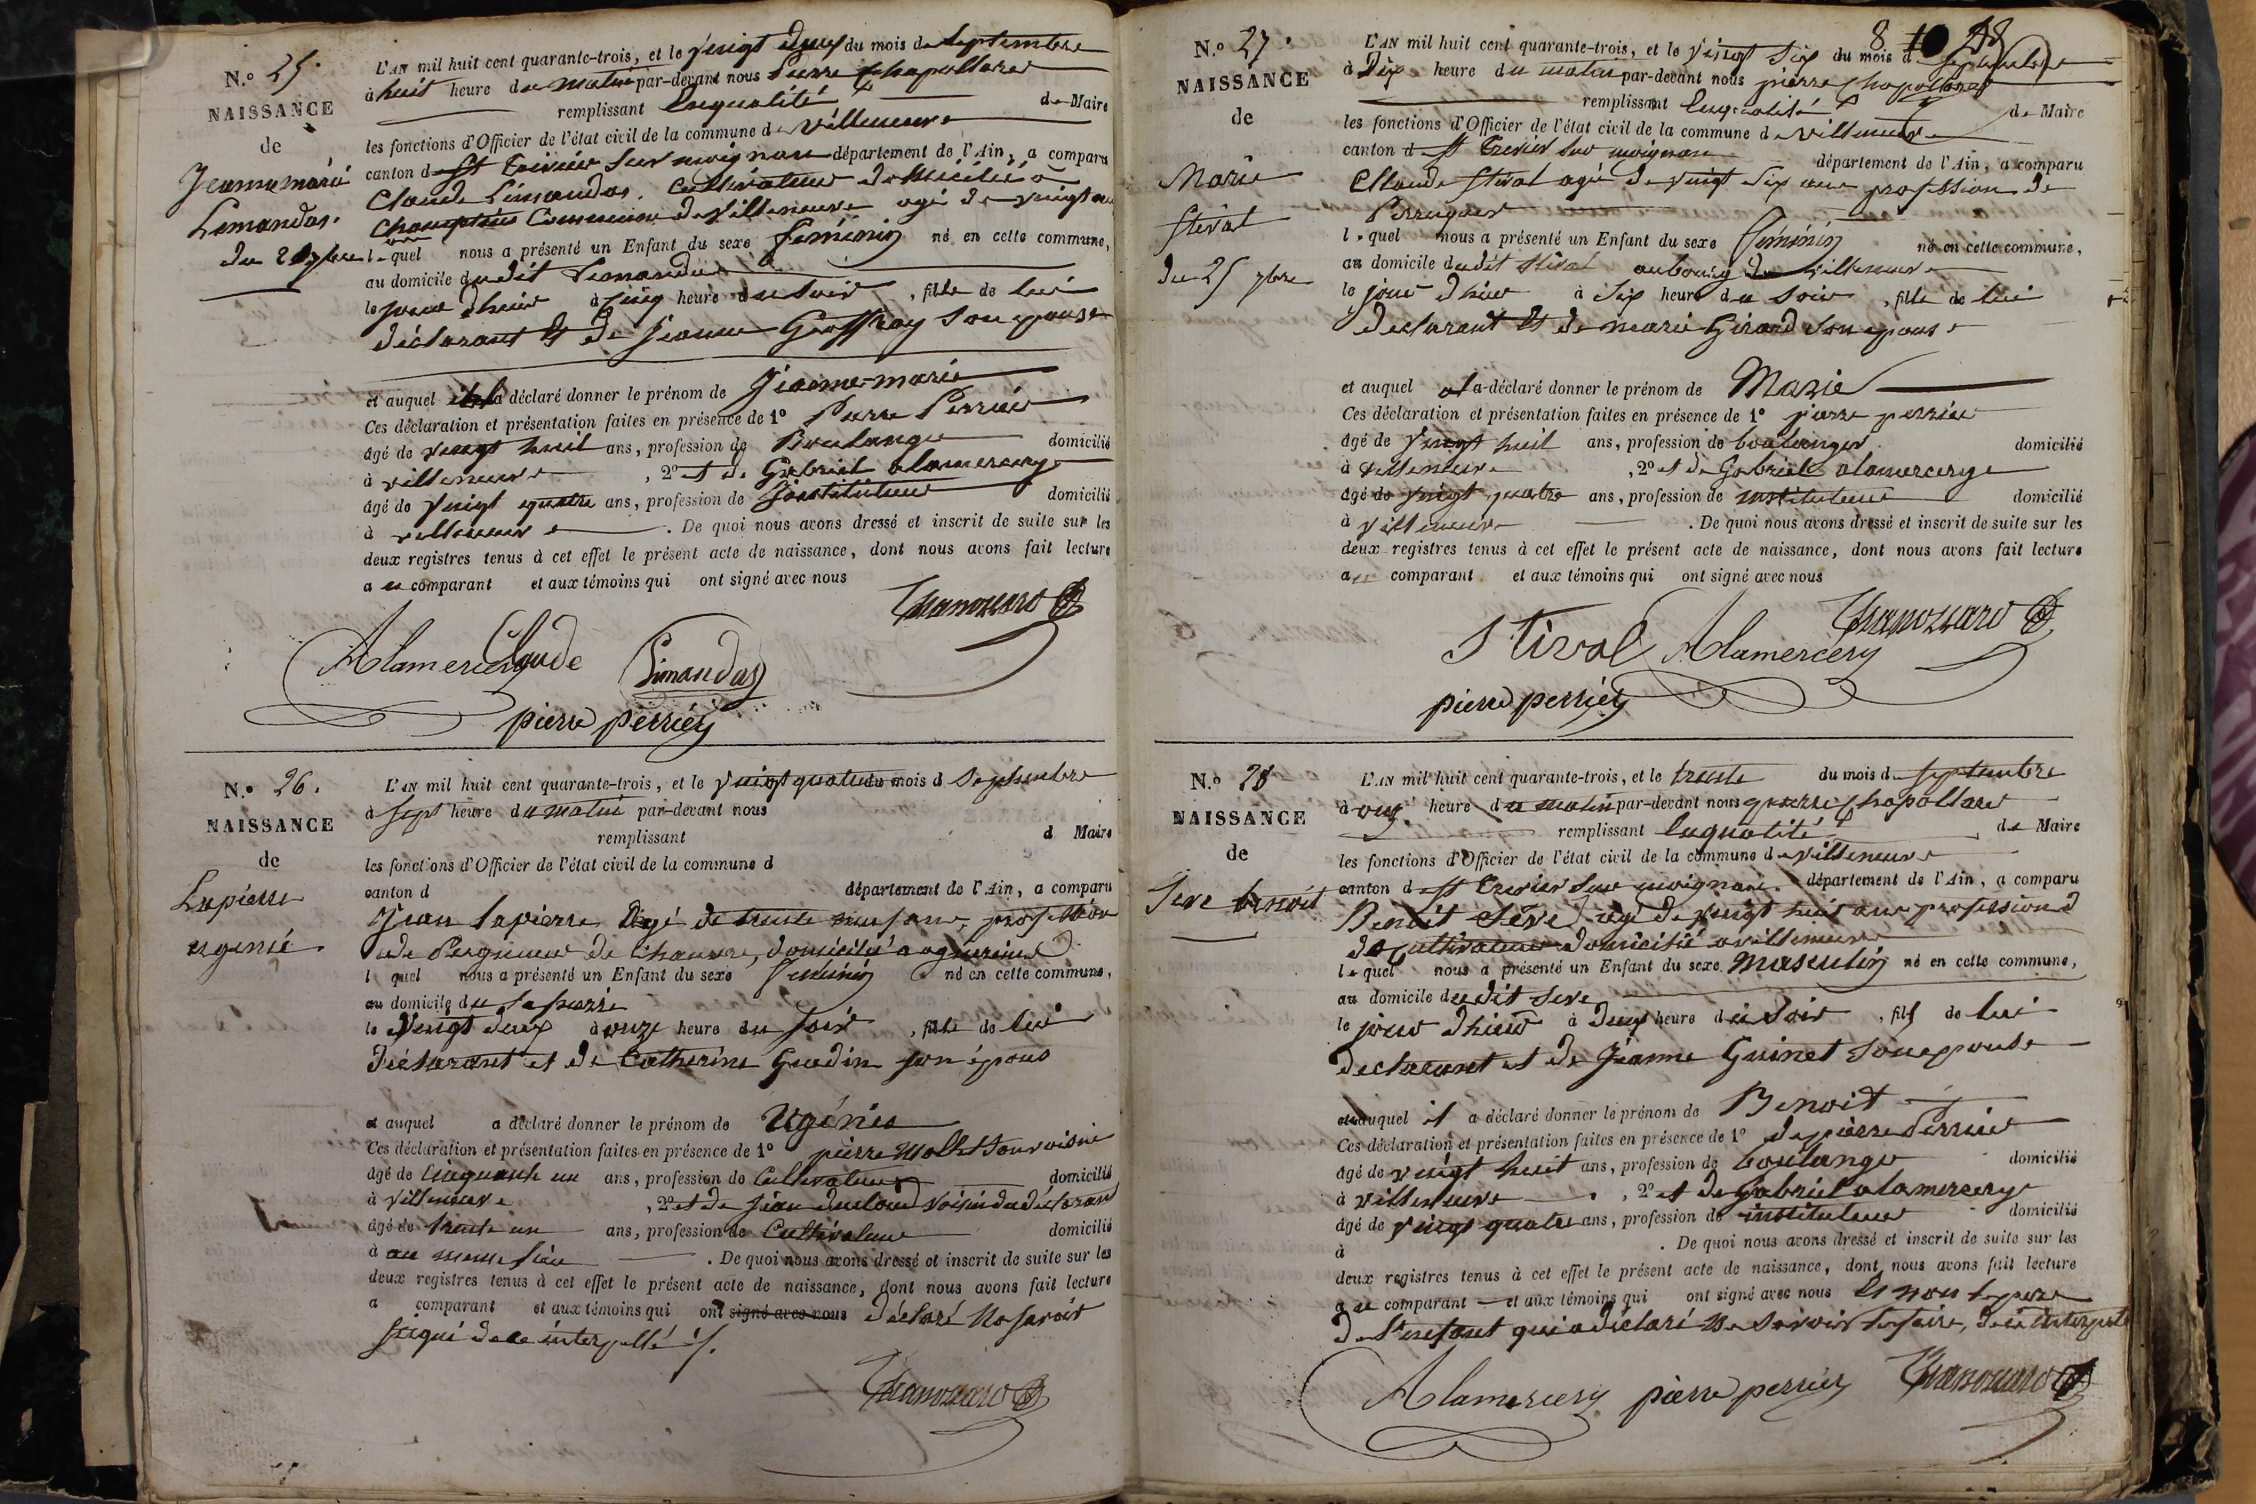 N.º 25.
NAISSANCE
de
Jeanne marie
Limandas.
du 21 7bre
L'AN mil huit cent quarante-trois, et le vingt deux du mois de Septembre
à huit heure du matin par-devant nous Pierre Chapollard
remplissant laqualité de Maire
les fonctions d'Officier de l'état civil de la commune de villeneuve
canton de St Trivier Sur moignan département de l'Ain, a comparu
Claude Limandas. Cultivateur domicilié a
Commune de Villeneuve agé de vingt
lequel nous a présenté un Enfant du sexe féminin né en cette commune,
au domicile dudit Limandas
le jour d'hier à cinq heure du soir, fille de lui
déclarant et de Jeanne Geoffray son epouse
et auquel il a déclaré donner le prénom de Jeanne-marie
Ces déclaration et présentation faites en présence de 1º Pierre Perrier
âgé de vingt huit ans, profession de Boulanger domicilié
à villeneuve, 2º et de Gabriel alamercery
âgé de vingt quatre ans, profession de instituteur domicilié
à villeneuve. De quoi nous avons dressé et inscrit de suite sur les
deux registres tenus à cet effet le présent acte de naissance, dont nous avons fait lecture
a u comparant et aux témoins qui ont signé avec nous
Alamercery Claude Limandas
pierre perrier
N.º 26.
NAISSANCE
de
Lapierre
ugenie.
L'AN mil huit cent quarante-trois, et le vingt quatre du mois d Septembre
à sept heure du matin par-devant nous
remplissant d Maire
les fonctions d'Officier de l'état civil de la commune d
canton d département de l'Ain, a comparu
Jean Lapierre agé de trente neuf ans, profession
de Peigneur de Chanvre, domicilié a
l quel nous a présenté un Enfant du sexe féminin né en cette commune,
au domicile du Lapierre
le vingt deux à onze heure du soir, fille de lui
déclarant et de Catherine Guedin son épouse
et auquel a déclaré donner le prénom de Ugénie
Ces déclaration et présentation faites en présence de 1º pierre Mollet son voisin
âgé de cinquante un ans, profession de Cultivateur domicilié
à villeneuve, 2º et de Jean ducloud voisin du déclarant
âgé de trente un ans, profession de Cultivateur domicilié
à au meme lieu. De quoi nous avons dressé et inscrit de suite sur les
deux registres tenus à cet effet le présent acte de naissance, dont nous avons fait lecture
a comparant et aux témoins qui ont signé avec nous déclaré ne savoir
signé de ce interpellé
N.º 27.
NAISSANCE
de
Marie
Stival
du 25 7bre
8 10 28
L'AN mil huit cent quarante-trois, et le vingt six du mois de Septembre
à Dix heure du matin par-devant nous pierre Chapollard
remplissant laqualité de Maire
les fonctions d'Officier de l'état civil de la commune de villeneuve
canton d St Trivier Sur moignan département de l'Ain, a comparu
Claude Stival agé de vingt Six ans profession de
Perruquer
lequel nous a présenté un Enfant du sexe féminin né en cette commune,
au domicile dudit Stival aubourg de villeneuve
le jour d'hier à Six heure du soir, fille de lui
déclarant et de marie Girard son epouse
et auquel il a déclaré donner le prénom de Marie
Ces déclaration et présentation faites en présence de 1º pierre perrier
âgé de vingt huit ans, profession de boulanger domicilié
à villeneuve, 2º et de Gabriel alamercery
âgé de vingt quatre ans, profession de instituteur domicilié
à villeneuve. De quoi nous avons dressé et inscrit de suite sur les
deux registres tenus à cet effet le présent acte de naissance, dont nous avons fait lecture
au comparant et aux témoins qui ont signé avec nous
Stival Alamercery
pierre perrier
N.º 28
NAISSANCE
de
Seve benoit
L'AN mil huit cent quarante-trois, et le trente du mois de Septembre
à onze heure du matin par-devant nous pierre Chapollard
remplissant laqualité de Maire
les fonctions d'Officier de l'état civil de la commune de villeneuve
canton d St Trivier Sur moignan. département de l'Ain, a comparu
Benoit Séve agé de vingt huit ans profession d
de Cultivateur domicilié a villeneuve
lequel nous a présenté un Enfant du sexe masculin né en cette commune,
au domicile dudit Seve
le jour d'hier à deux heure du soir, fils de lui
declarant et de Jeanne Guinet son epouse
et auquel il a déclaré donner le prénom de Benoit
Ces déclaration et présentation faites en présence de 1º de pierre Perrier
âgé de vingt huit ans, profession de boulanger domicilié
à villeneuve, 2º et de Gabriel alamercery
âgé de vingt quatre ans, profession de instituteur domicilié
à. De quoi nous avons dressé et inscrit de suite sur les
deux registres tenus à cet effet le présent acte de naissance, dont nous avons fait lecture
a u comparant et aux témoins qui ont signé avec nous et non le pere
de l'enfant qui a déclaré ne savoir le faire, de ce interpellé
Alamercery pierre perrier